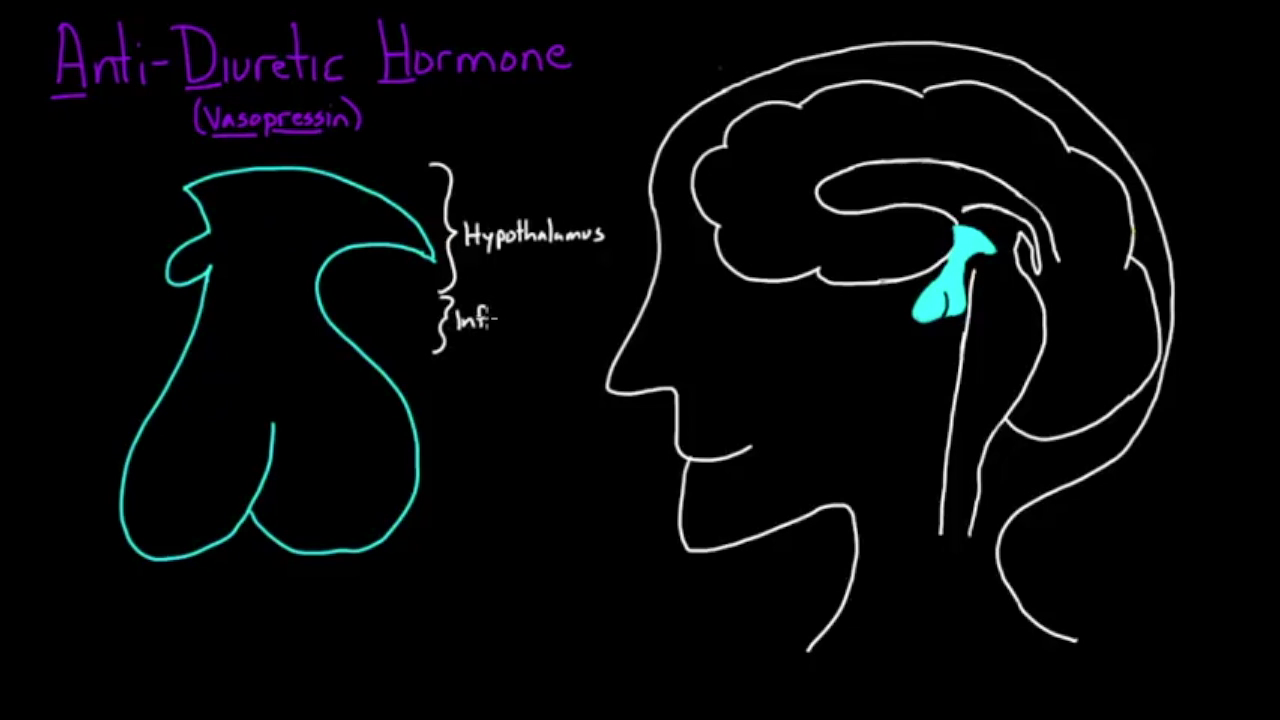 Anti-Diuretic Hormone
(Vasopressin)
Hypothalamus
Infi-